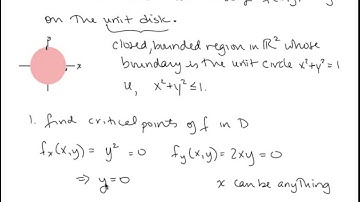 on the unit disk.
closed, bounded region in ℝ² whose
boundary is the unit circle x²+y²=1
y
x
u, x²+y²≤1.
1. find critical points of f in D
fx(x,y) = y² = 0 fy(x,y)=2xy=0
⇒ y=0 x can be anything